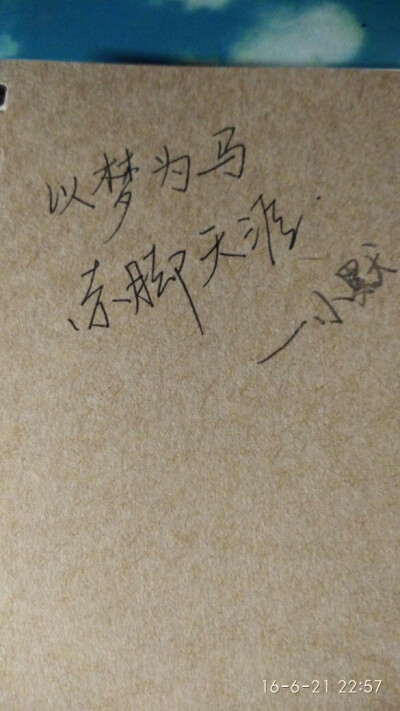 以梦为马
赤脚天涯.
—小默
16-6-21 22:57